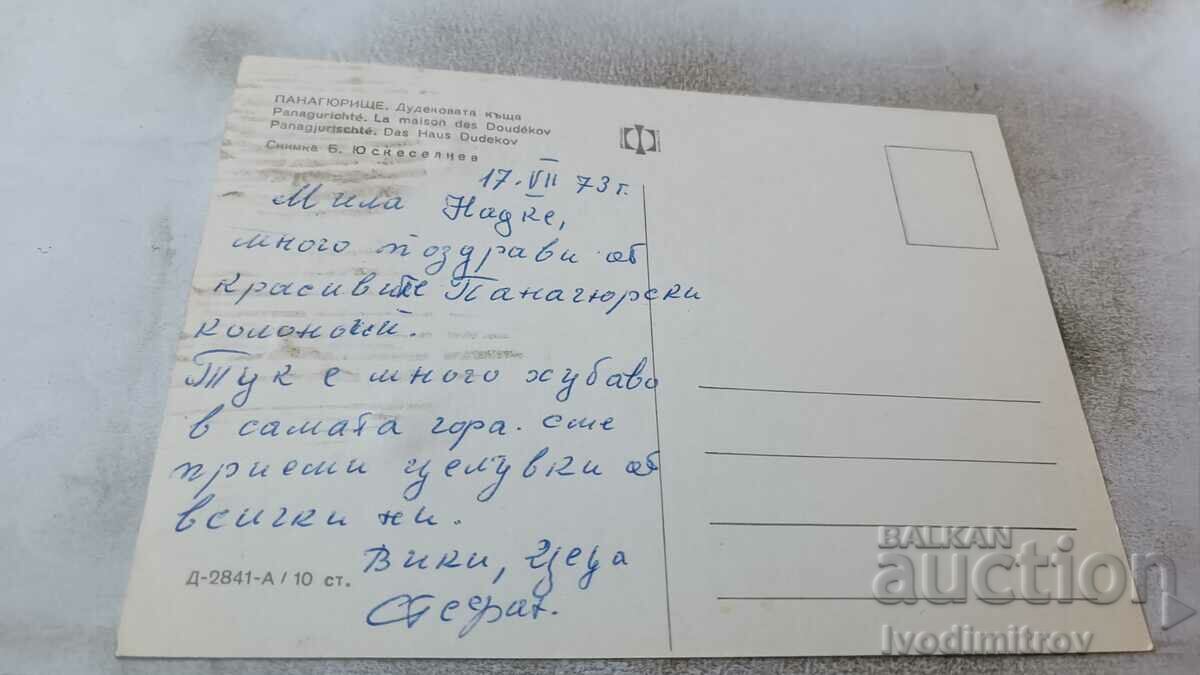 ПАНАГЮРИЩЕ. Дудековата къща
Panagurichté. La maison des Doudékov
Panagjurischté. Das Haus Dudekov
Снимка Б. Юскеселиев
17. VII 73 г.
Мила Надке,
много поздрави от
красивите Панагюрски
колонии.
Тук е много хубаво
в самата гора. сме
приеми целувки от
всички ни.
Вики, Цеца
Стефан.
Д-2841-А / 10 ст.
BALKAN
auction
Ivodimitrov